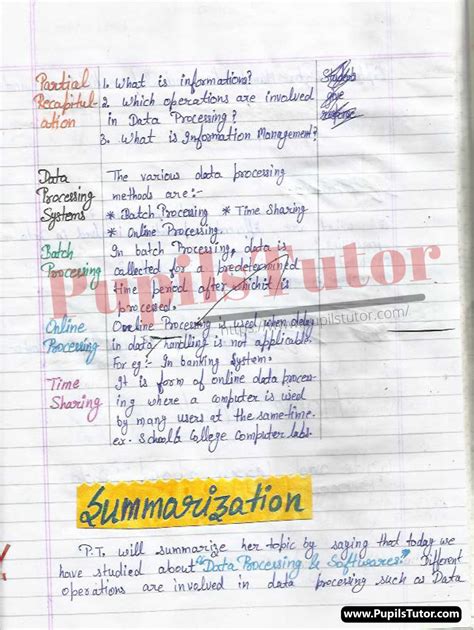 Partial 1. What is information? Students
Recapitul- 2. Which operations are involved give
ation in Data Processing? response
3. What is Information Management?
Data The various data processing
Processing methods are:-
Systems * Batch Processing * Time Sharing
* Online Processing.
Batch In batch Processing, data is
Processing collected for a predetermined
time period after which it is
processed.
Online Online Processing is used when delay
Processing in data handling is not applicable.
For eg:- In banking System.
Time It is form of online data proces-
Sharing ing where a computer is used
by many users at the same time.
ex. school & College computer labs.
PupilsTutor
pupilstutor.com/
Summarization
P.T. will summarize her topic by saying that today we
have studied about "Data Processing & Softwares." Different
operations are involved in data processing such as Data
www.PupilsTutor.com